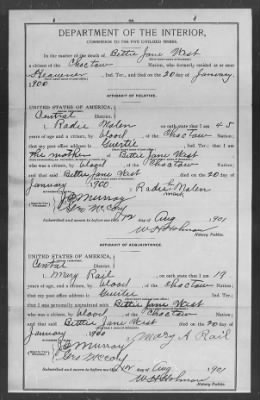 DEPARTMENT OF THE INTERIOR,
COMMISSION TO THE FIVE CIVILIZED TRIBES.
In the matter of the death of Bettie Jane West
a citizen of the Choctaw Nation, who formerly resided at or near
Ind. Ter., and died on the 20 day of January,
1900
AFFIDAVIT OF RELATIVE.
UNITED STATES OF AMERICA,
Central District.
I, Radie Malen on oath state that I am 45
years of age and a citizen, by blood, of the Choctaw Nation;
that my post office address is Guertie, Ind. Ter.; that I am
the mother of Bettie Jane West
who was a citizen, by blood, of the Choctaw Nation;
and that said Bettie Jane West died on the 20 day of
January, 1900
Radie Malen
mark
J B Murray
Geo McCoy
Subscribed and sworn to before me this day of Aug 1901
Notary Public.
AFFIDAVIT OF ACQUAINTANCE.
UNITED STATES OF AMERICA,
Central District.
I, Mary Rail, on oath state that I am 19
years of age, and a citizen by blood, of the Choctaw Nation;
that my post office address is Guertie, Ind. Ter.;
that I was personally acquainted with Bettie Jane West
who was a citizen, by blood, of the Choctaw Nation;
and that said Bettie Jane West died on the 20 day of
January, 1900
Mary A Rail
J B Murray
Geo McCoy
Subscribed and sworn to before me this day of Aug 1901
Notary Public.